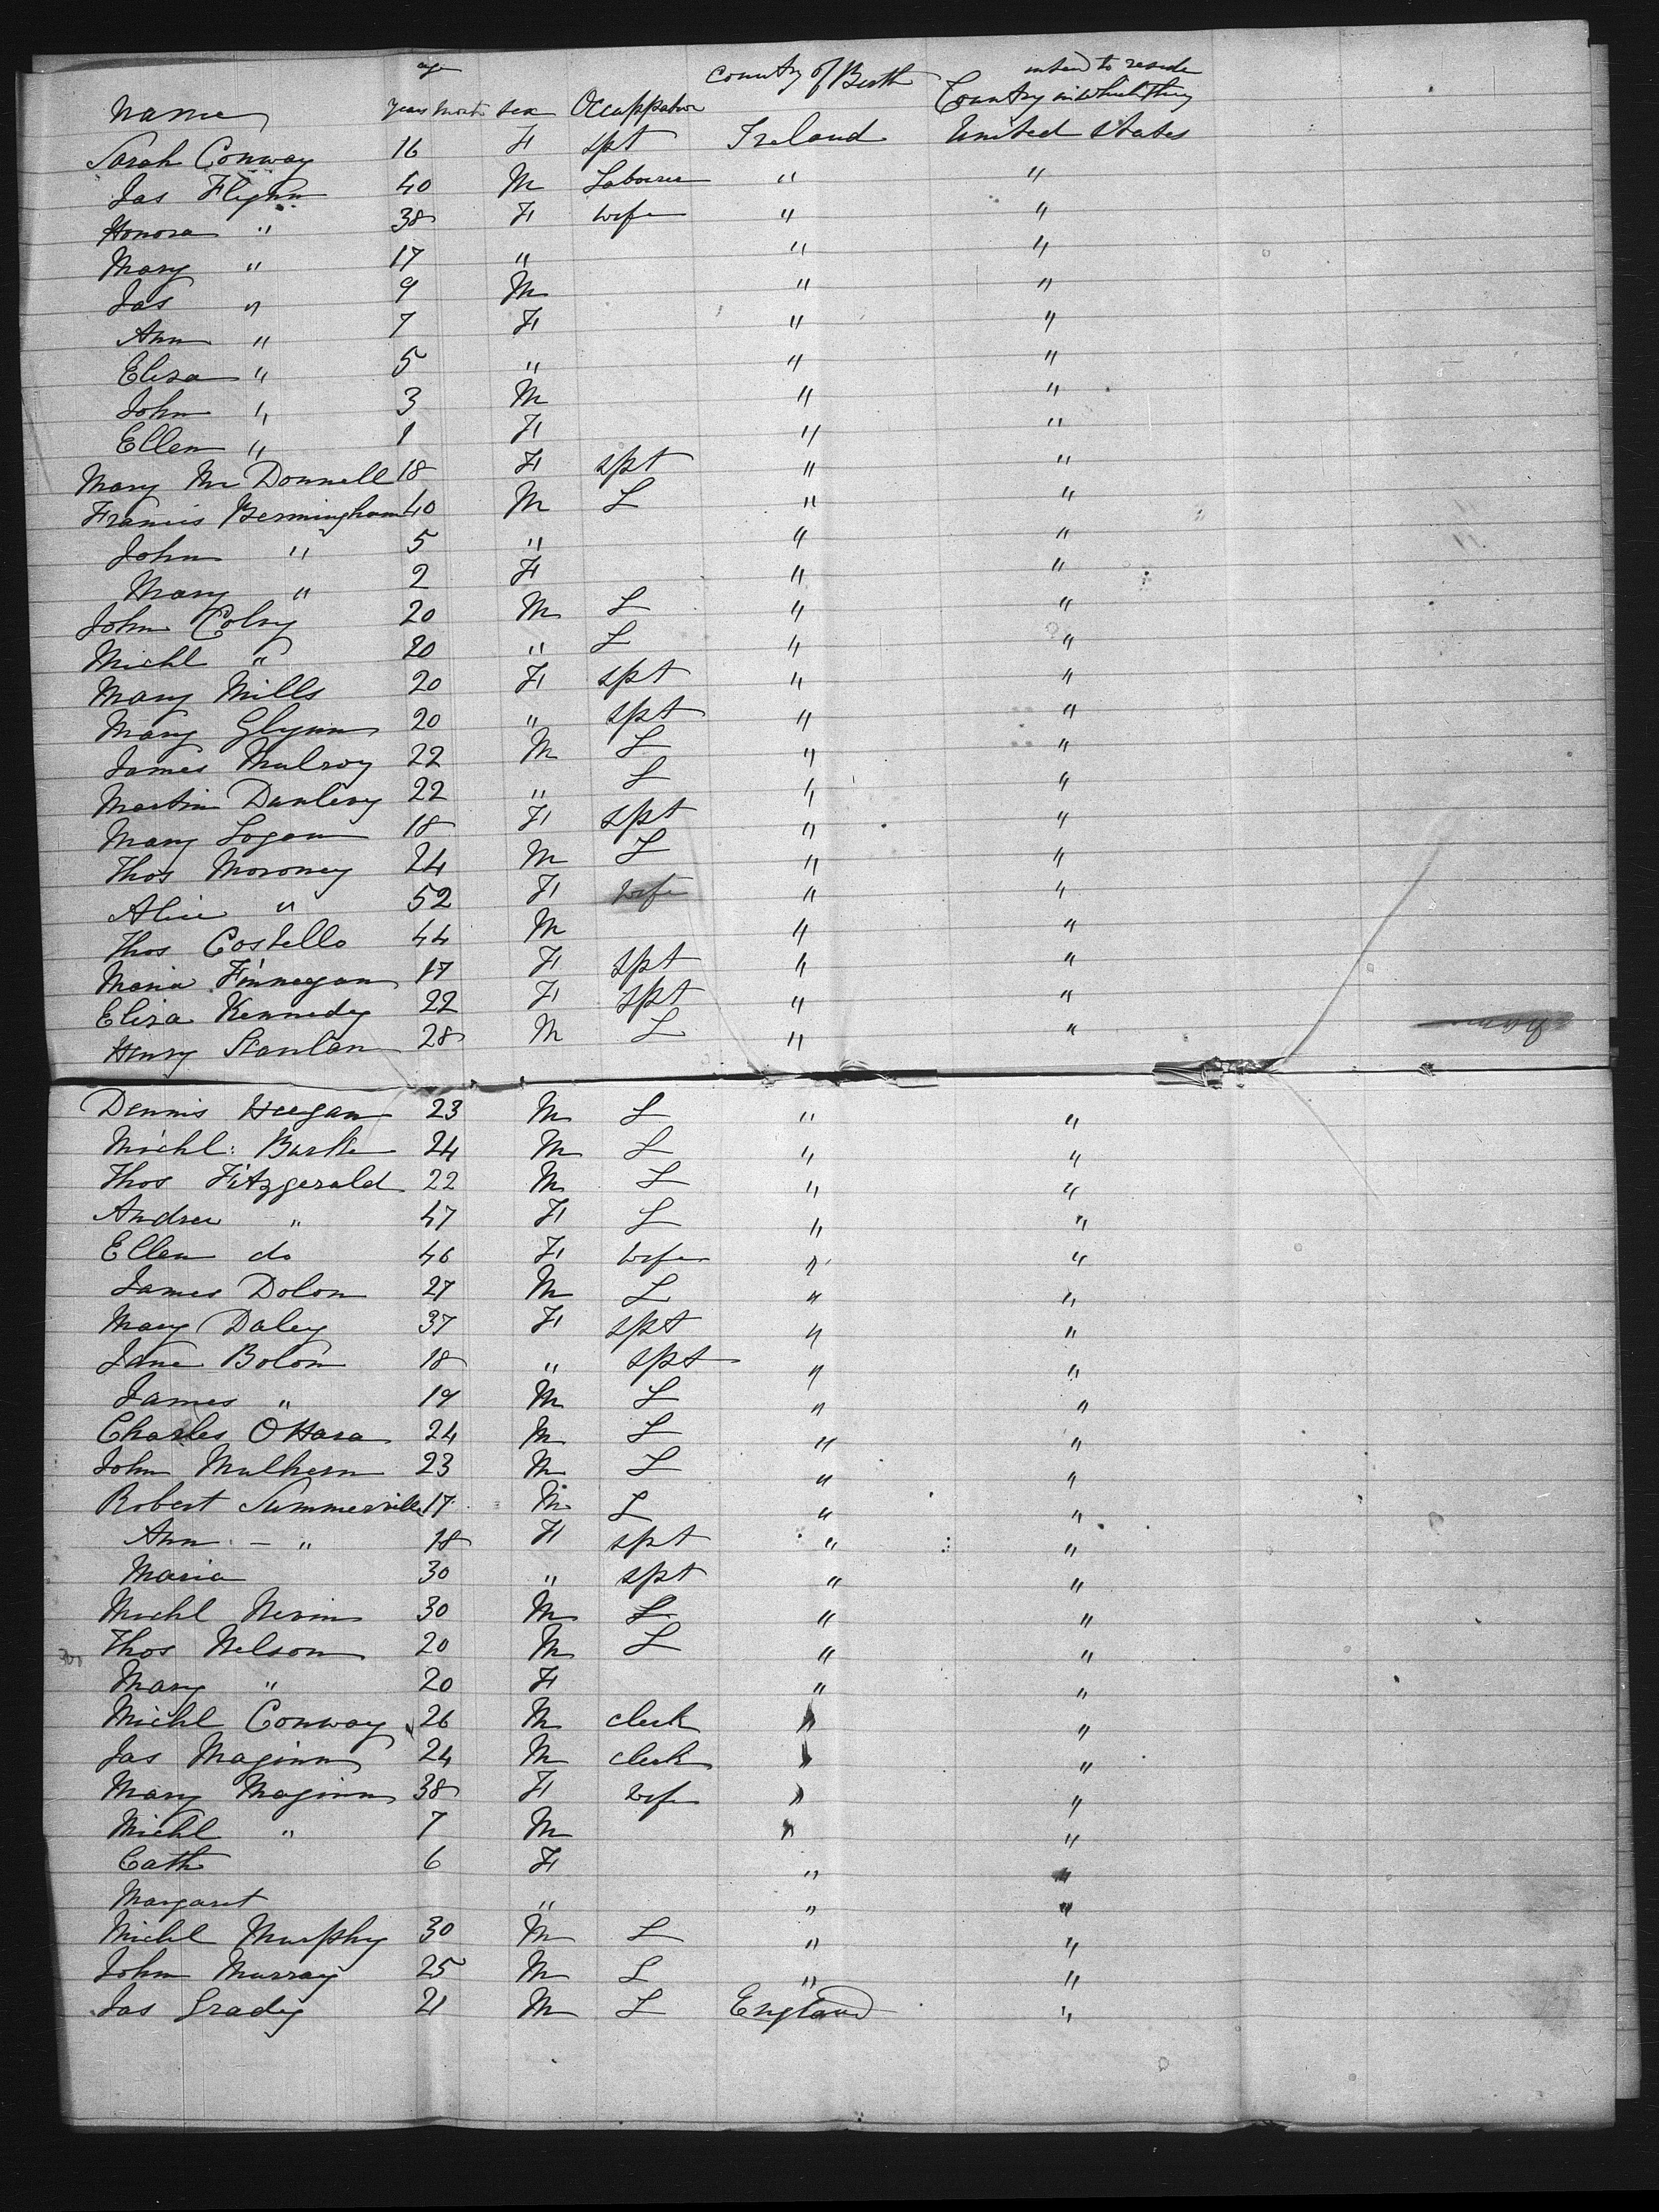 age Country of Birth intend to reside
Name years Month sex Occuppation Country in which they
Sarah Conway 16 F spt Ireland United States
Jas Flynn 40 M Labourer " "
Honora " 38 F wife " "
Mary " 17 " " "
Jas " 9 M " "
Ann " 7 F " "
Eliza " 5 " " "
John " 3 M " "
Ellen " 1 F " "
Mary Mc Donnell 18 F spt " "
Francis Bermingham 40 M L " "
John " 5 " " "
Mary " 2 F " "
John Colry 20 M L " "
Michl " 20 " L " "
Mary Mills 20 F spt " "
Mary Glynn 20 " spt " "
James Mulroy 22 M L " "
Martin Dunlevy 22 " L " "
Mary Logan 18 F spt " "
Thos Moroney 24 M L " "
Alice " 52 F wife " "
Thos Costello 44 M " "
Maria Finnegan 17 F spt " "
Eliza Kennedy 22 F spt " "
Henry Scanlan 28 M L " "
Dennis Heegan 23 M L " "
Michl: Burke 24 M L " "
Thos Fitzgerald 22 M L " "
Andrew " 47 F L " "
Ellen do 46 F wife " "
James Dolon 27 M L " "
Mary Daley 37 F spt " "
Jane Bolon 18 " spt " "
James " 19 M L " "
Charles OHara 24 M L " "
John Mulhern 23 M L " "
Robert Summerville 17 M L " "
Ann - " 18 F spt " "
Maria 30 " spt " "
Michl Nevin 30 M L " "
Thos Nelson 20 M L " "
Mary " 20 F " "
Michl Conway 26 M clerk " "
Jas Maginn 24 M clerk " "
Mary Maginn 38 F wife " "
Michl " 7 M " "
Cath 6 F " "
Margaret " " "
Michl Murphy 30 M L " "
John Murray 25 M L " "
Jas Grady 21 M L England "